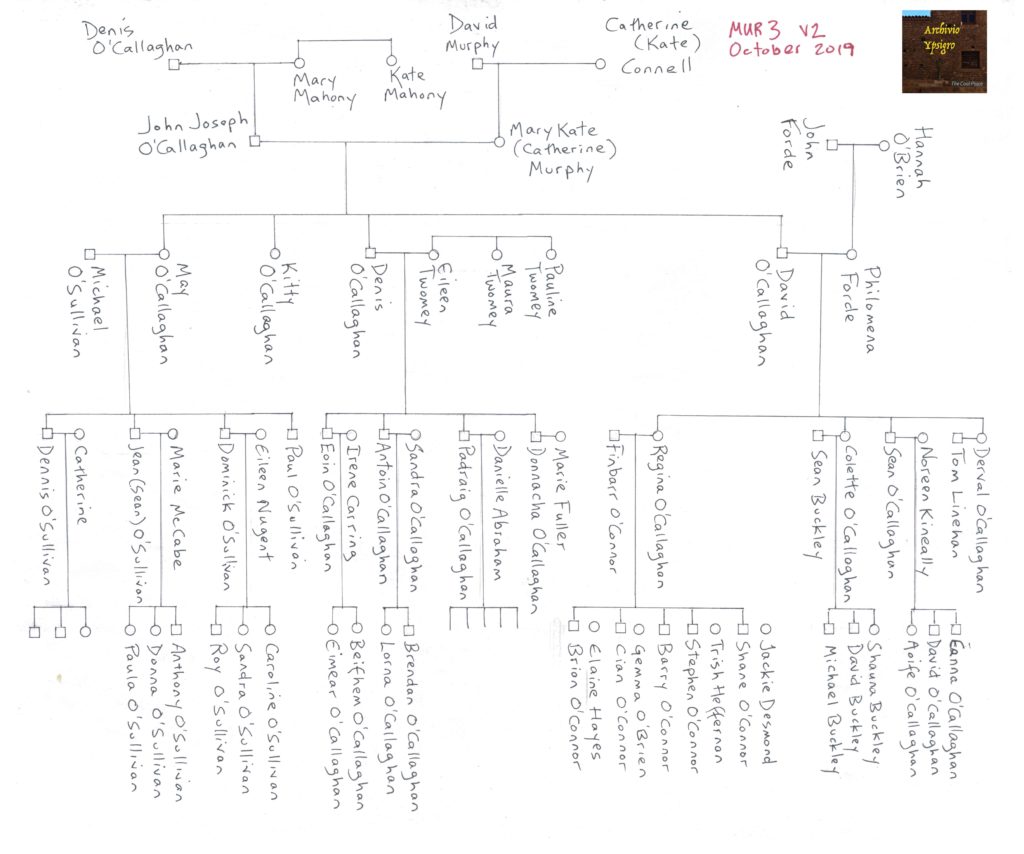 Denis
O'Callaghan
David
Murphy
Catherine
(Kate)
Connell
MUR 3 V2
October 2019
Archivio
Ypsigro
The Coal Place
Mary
Mahony
Kate
Mahony
John Joseph
O'Callaghan
Mary Kate
(Catherine)
Murphy
John
Forde
Hannah
O'Brien
Michael
O'Sullivan
May
O'Callaghan
Kitty
O'Callaghan
Denis
O'Callaghan
Eileen
Twomey
Maura
Twomey
Pauline
Twomey
David
O'Callaghan
Philomena
Forde
Dennis O'Sullivan
Catherine
Jean (Sean) O'Sullivan
Marie McCabe
Dominick O'Sullivan
Eileen Nugent
Paul O'Sullivan
Eoin O'Callaghan
Irene Carring
Antoin O'Callaghan
Sandra O'Callaghan
Padraig O'Callaghan
Danielle Abraham
Donnacha O'Callaghan
Marie Fuller
Finbarr O'Connor
Regina O'Callaghan
Sean Buckley
Colette O'Callaghan
Sean O'Callaghan
Noreen Kineally
Tom Linehan
Derval O'Callaghan
Paula O'Sullivan
Donna O'Sullivan
Anthony O'Sullivan
Roy O'Sullivan
Sandra O'Sullivan
Caroline O'Sullivan
Eimear O'Callaghan
Beifhem O'Callaghan
Lorna O'Callaghan
Brendan O'Callaghan
Brian O'Connor
Elaine Hayes
Cian O'Connor
Gemma O'Brien
Barry O'Connor
Stephen O'Connor
Trish Heffernon
Shane O'Connor
Jackie Desmond
Michael Buckley
David Buckley
Shauna Buckley
Aoife O'Callaghan
David O'Callaghan
Éanna O'Callaghan